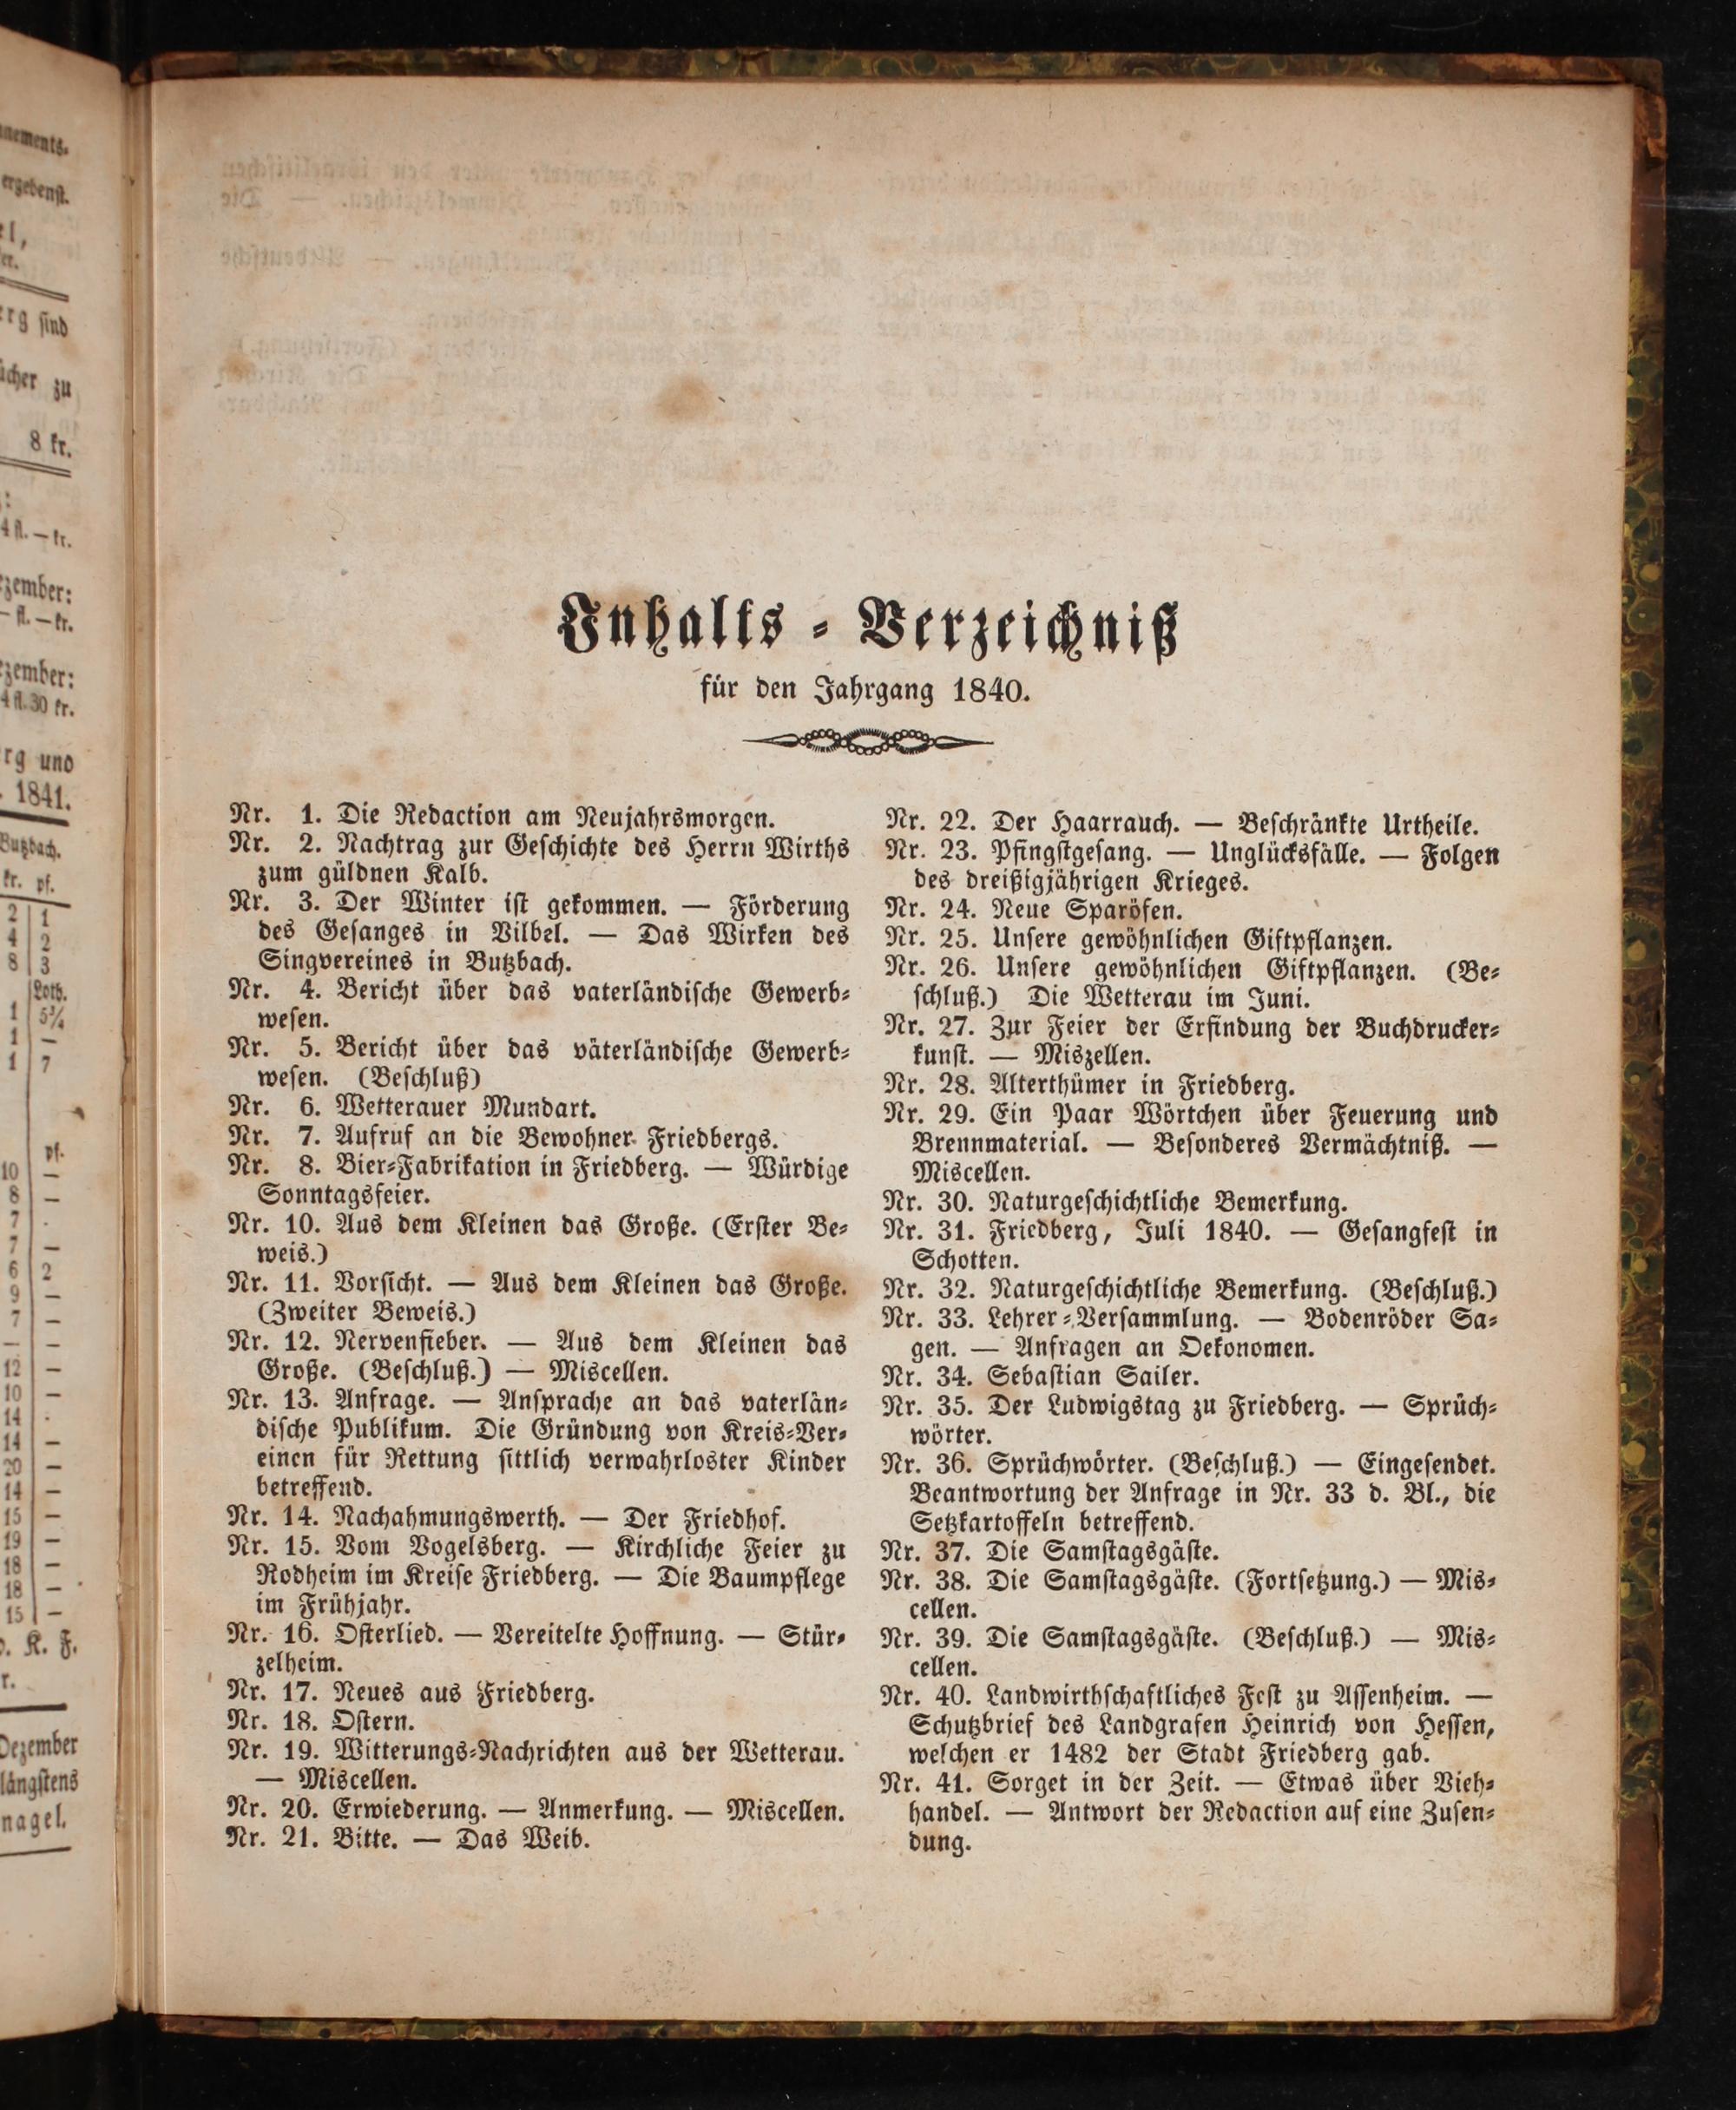 nements.
ergebenst.
rg sind
ücher zu
8 kr.
4 fl. — kr.
ezember:
— fl. — kr.
ezember:
4 fl. 30 kr.
rg und
1841.
Butzbach.
kr. pf.
2 1
4 2
8 3
Loth.
1 5¾
1 —
1 7
pf.
10 —
8 —
7 .
7 —
6 2
9 —
7 —
— —
12 —
10 —
14 .
14 —
20 —
14 —
15 —
19 —
18 —
18 —
15 —
K. F.
r.
Dezember
längstens
nagel.
Inhalts-Verzeichniß
für den Jahrgang 1840.
Nr. 1. Die Redaction am Neujahrsmorgen.
Nr. 2. Nachtrag zur Geschichte des Herrn Wirths
zum güldnen Kalb.
Nr. 3. Der Winter ist gekommen. — Förderung
des Gesanges in Vilbel. — Das Wirken des
Singvereines in Butzbach.
Nr. 4. Bericht über das vaterländische Gewerb-
wesen.
Nr. 5. Bericht über das väterländische Gewerb-
wesen. (Beschluß)
Nr. 6. Wetterauer Mundart.
Nr. 7. Aufruf an die Bewohner Friedbergs.
Nr. 8. Bier-Fabrikation in Friedberg. — Würdige
Sonntagsfeier.
Nr. 10. Aus dem Kleinen das Große. (Erster Be-
weis.)
Nr. 11. Vorsicht. — Aus dem Kleinen das Große.
(Zweiter Beweis.)
Nr. 12. Nervenfieber. — Aus dem Kleinen das
Große. (Beschluß.) — Miscellen.
Nr. 13. Anfrage. — Ansprache an das vaterlän-
dische Publikum. Die Gründung von Kreis-Ver-
einen für Rettung sittlich verwahrloster Kinder
betreffend.
Nr. 14. Nachahmungswerth. — Der Friedhof.
Nr. 15. Vom Vogelsberg. — Kirchliche Feier zu
Rodheim im Kreise Friedberg. — Die Baumpflege
im Frühjahr.
Nr. 16. Osterlied. — Vereitelte Hoffnung. — Stür-
zelheim.
Nr. 17. Neues aus Friedberg.
Nr. 18. Ostern.
Nr. 19. Witterungs-Nachrichten aus der Wetterau.
— Miscellen.
Nr. 20. Erwiederung. — Anmerkung. — Miscellen.
Nr. 21. Bitte. — Das Weib.
Nr. 22. Der Haarrauch. — Beschränkte Urtheile.
Nr. 23. Pfingstgesang. — Unglücksfälle. — Folgen
des dreißigjährigen Krieges.
Nr. 24. Neue Sparöfen.
Nr. 25. Unsere gewöhnlichen Giftpflanzen.
Nr. 26. Unsere gewöhnlichen Giftpflanzen. (Be-
schluß.) Die Wetterau im Juni.
Nr. 27. Zur Feier der Erfindung der Buchdrucker-
kunst. — Miszellen.
Nr. 28. Alterthümer in Friedberg.
Nr. 29. Ein Paar Wörtchen über Feuerung und
Brennmaterial. — Besonderes Vermächtniß. —
Miscellen.
Nr. 30. Naturgeschichtliche Bemerkung.
Nr. 31. Friedberg, Juli 1840. — Gesangfest in
Schotten.
Nr. 32. Naturgeschichtliche Bemerkung. (Beschluß.)
Nr. 33. Lehrer-Versammlung. — Bodenröder Sa-
gen. — Anfragen an Oekonomen.
Nr. 34. Sebastian Sailer.
Nr. 35. Der Ludwigstag zu Friedberg. — Sprüch-
wörter.
Nr. 36. Sprüchwörter. (Beschluß.) — Eingesendet.
Beantwortung der Anfrage in Nr. 33 d. Bl., die
Setzkartoffeln betreffend.
Nr. 37. Die Samstagsgäste.
Nr. 38. Die Samstagsgäste. (Fortsetzung.) — Mis-
cellen.
Nr. 39. Die Samstagsgäste. (Beschluß.) — Mis-
cellen.
Nr. 40. Landwirthschaftliches Fest zu Assenheim. —
Schutzbrief des Landgrafen Heinrich von Hessen,
welchen er 1482 der Stadt Friedberg gab.
Nr. 41. Sorget in der Zeit. — Etwas über Vieh-
handel. — Antwort der Redaction auf eine Zusen-
dung.